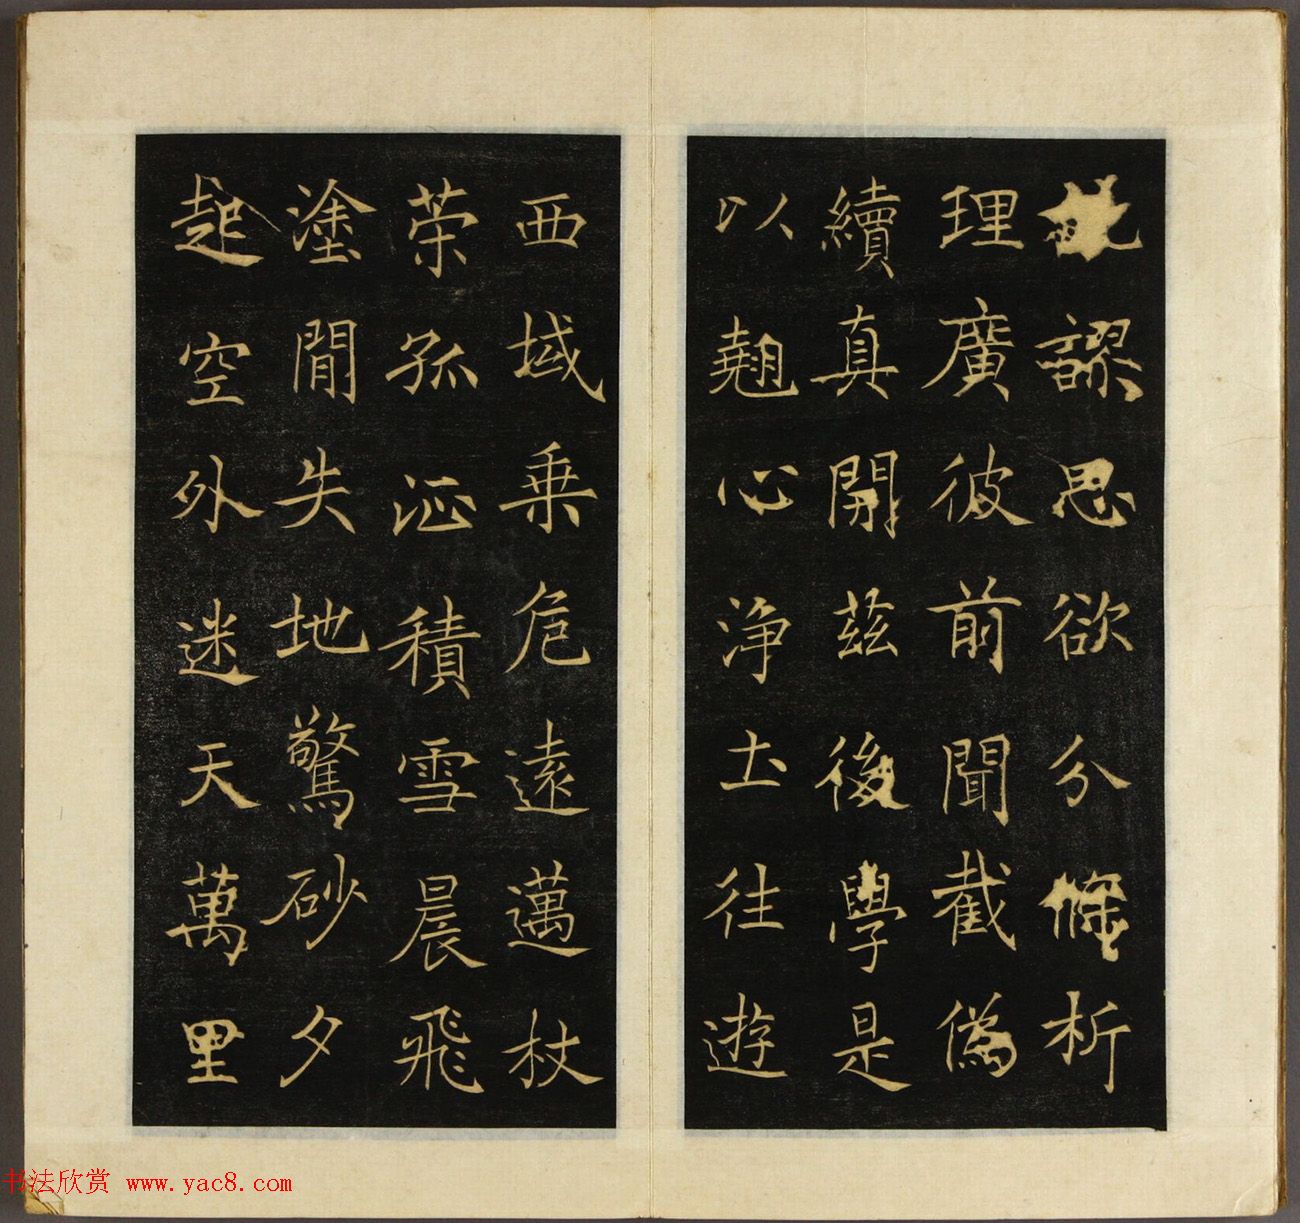 謬思欲分條析
理廣彼前聞截僞
續真開茲後學是
以翹心浄土往遊
西域乗危遠邁杖
策孤征積雪晨飛
塗閒失地驚砂夕
起空外迷天萬里
书法欣赏 www.yac8.com